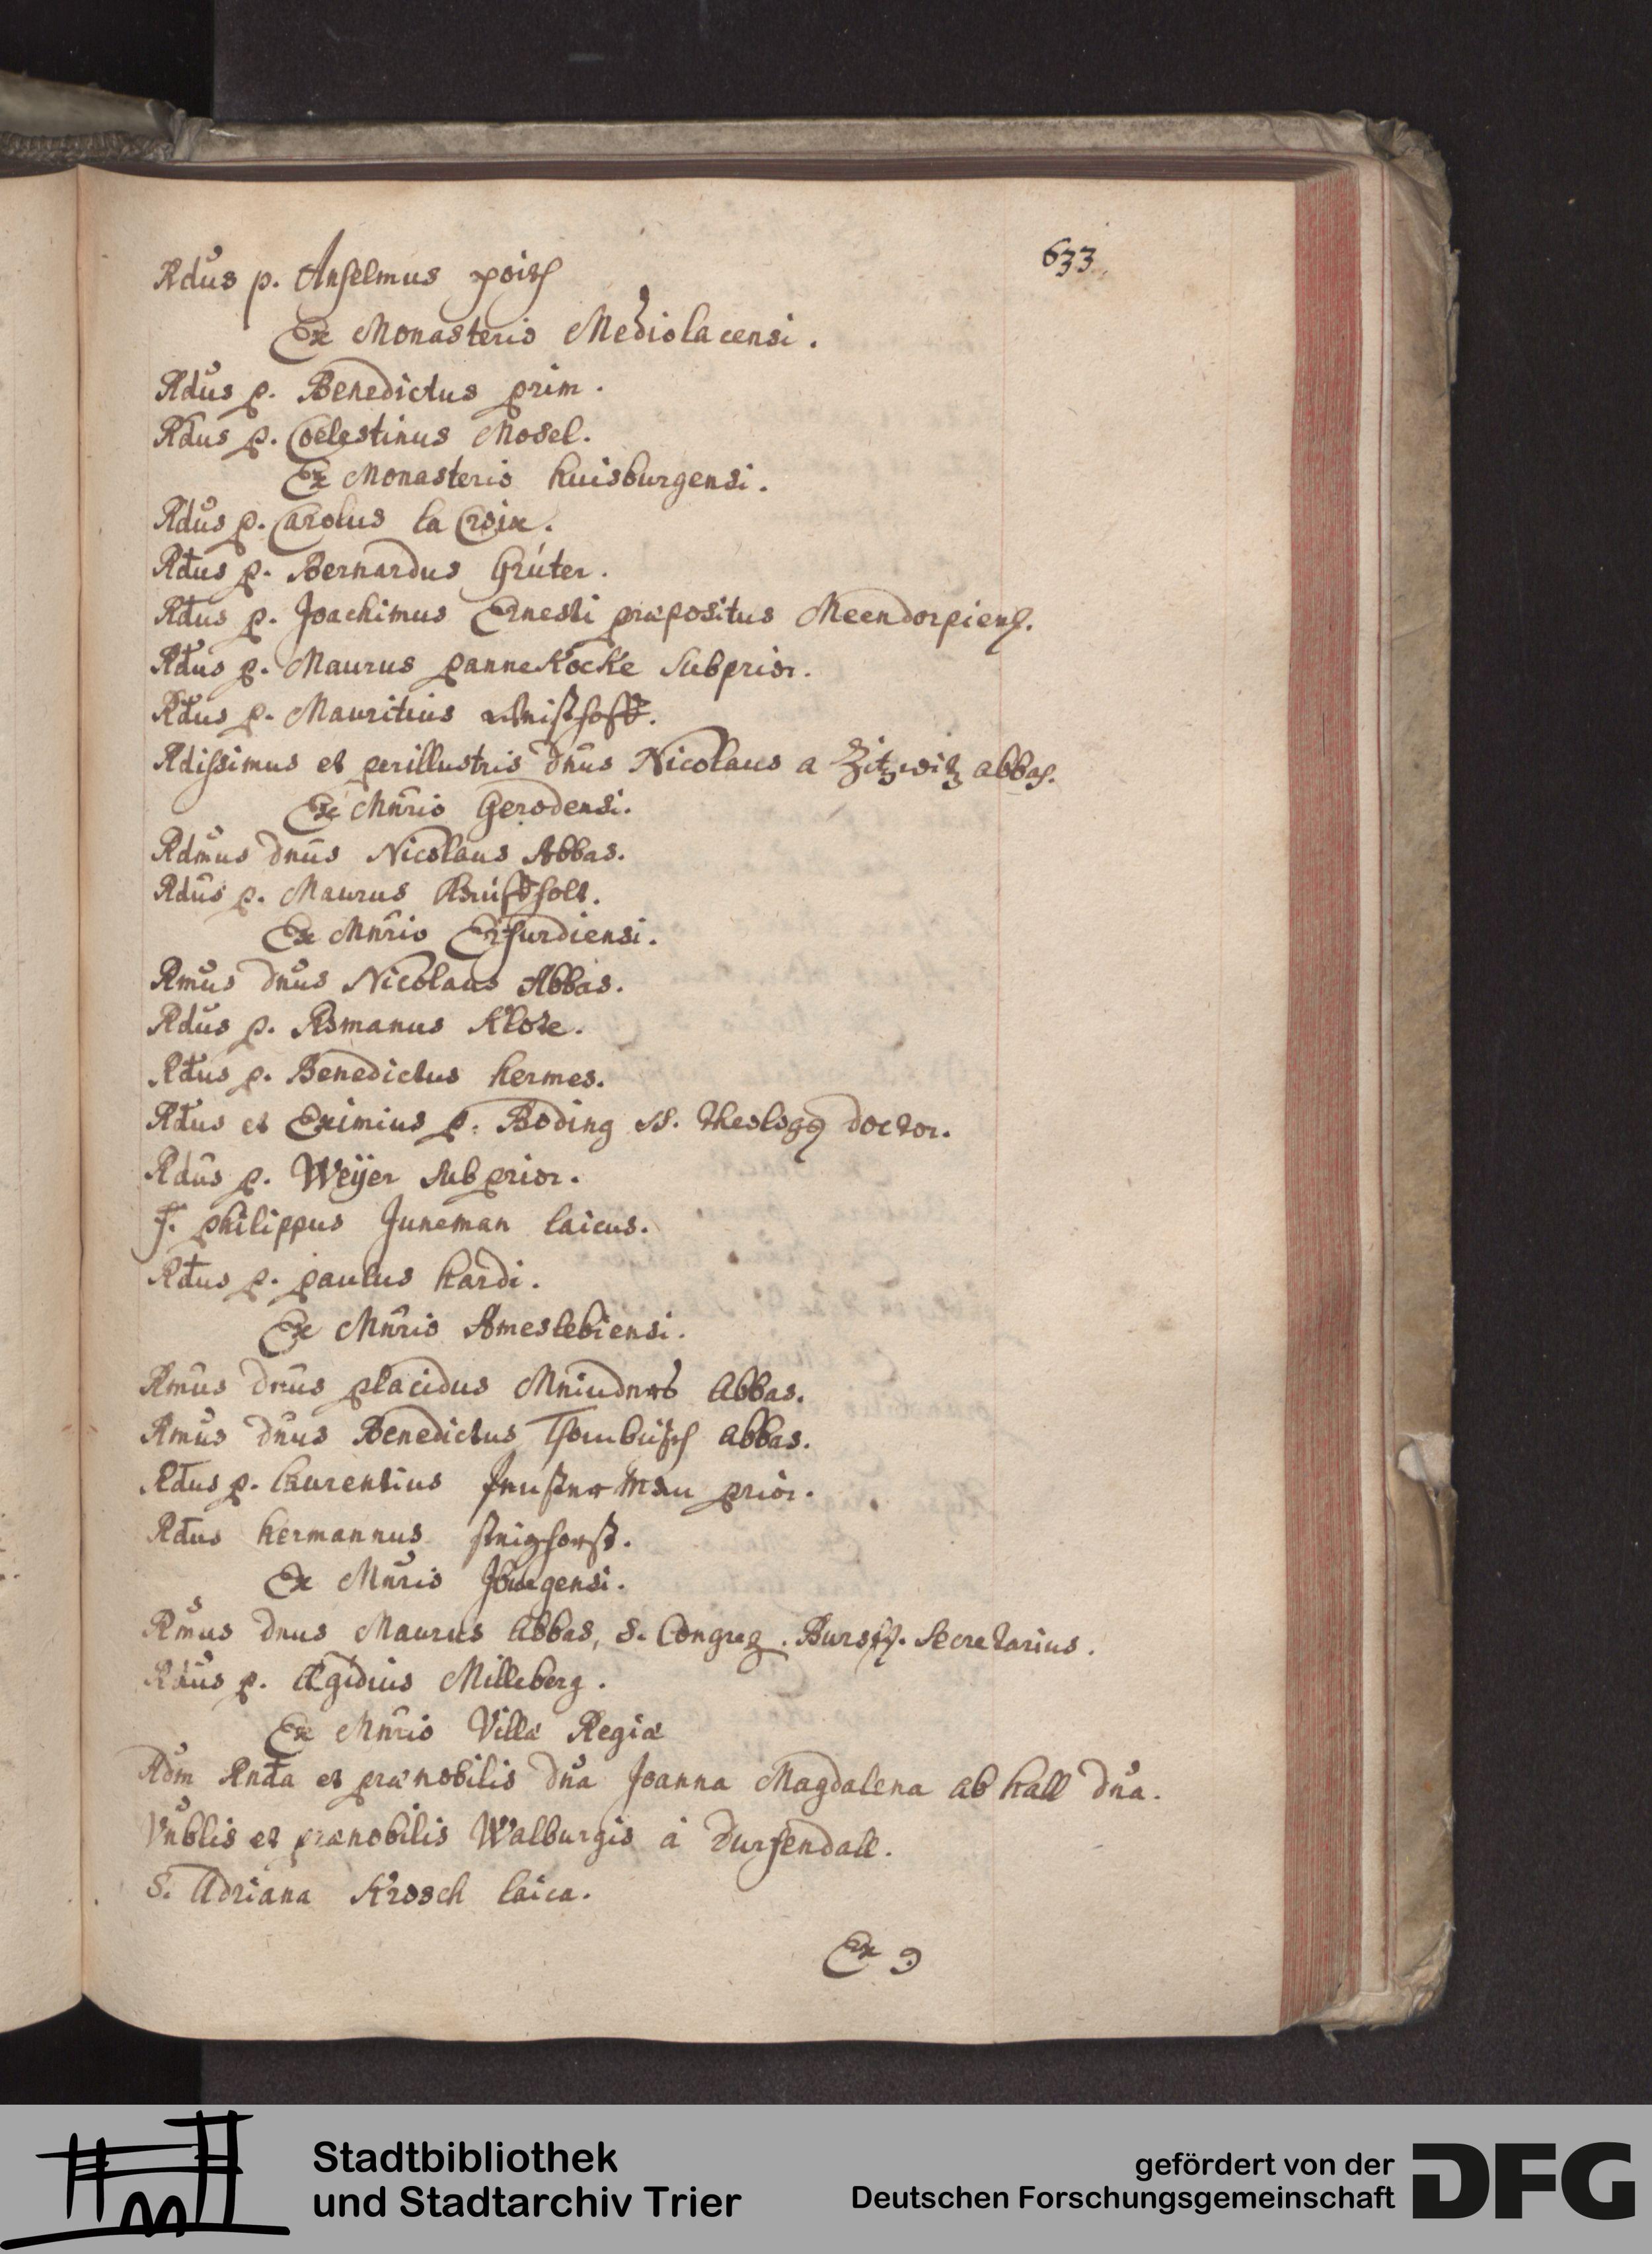 633
Rdus p. Anselmus poish
Ex Monasterio Mediolacensi.
Rdus p. Benedictus prim.
Rdus p. Coelestinus Mosel.
Ex Monasterio huisburgensi.
Rdus p. Carolus la Croix.
Rdus p. Bernardus Grúter.
Rdus p. Joachimus Ernesti præpositus Meendorpiens.
Rdus p. Maurus panneKocKe Subprior.
Rdus p. Mauritius
Rdissimus et perillustris dnus Nicolaus a Zitzwitz abbas.
Ex Mnrio Gerodensi.
Rdmus dnus Nicolaus Abbas.
Rdus p. Maurus
Ex Mnrio Erfurdiensi.
Rmus dnus Nicolaus Abbas.
Rdus p. Romanus Kloze.
Rdus p. Benedictus hermes.
Rdus et Eximius p. Boding SS. theologæ doctor.
Rdus p. Weÿer Subprior.
f. philippus Juneman laicus.
Rdus p. paulus hardi.
Ex Mnrio Ameslebiensi.
Rmus dnus placidus Meinders Abbas.
Rmus dnus Benedictus abbas.
Rdus p. laurentius prior.
Rdus hermannus
Ex Mnrio Jburgensi.
Rmus dnus Maurus abbas, S. Congreg. Bursf. Secretarius.
Rdus p. Ægidius Milleberg.
Ex Mnrio Villæ Regiæ
Adm Rnda et prænobilis dna Joanna Magdalena ab hall dna.
Vnblis et prænobilis Walburgis á dursendall.
S. Adriana Krosch laica.
Ex
Stadtbibliothek
und Stadtarchiv Trier
gefördert von der
Deutschen Forschungsgemeinschaft
DFG